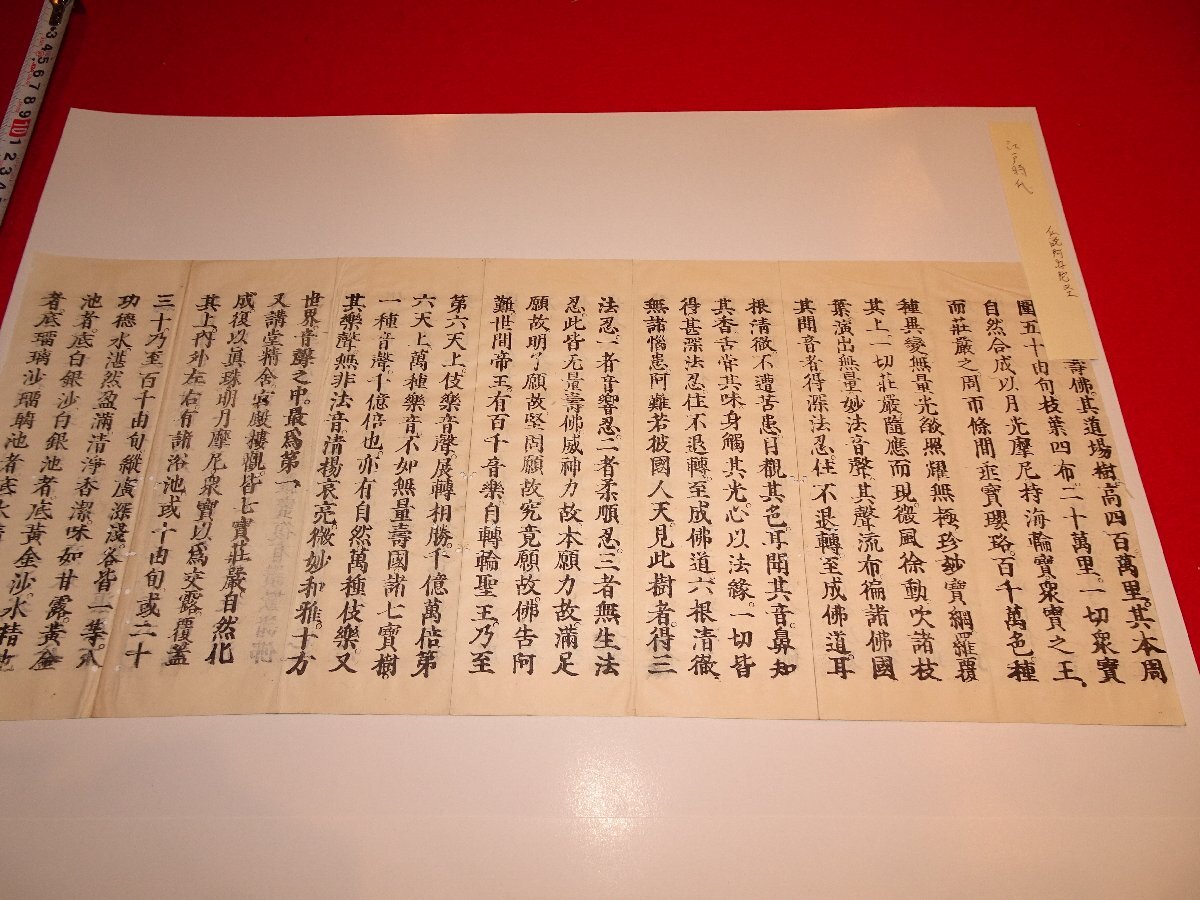 江戸時代
壽佛。其道場樹高四百萬里。其本周
圍五十由旬枝葉四布二十萬里。一切衆寶
自然合成以月光摩尼持海輪寶衆寶之王。
而莊嚴之周帀條間垂寶瓔珞。百千萬色種
種異變無量光燄照耀無極珍妙寶網羅覆
其上一切莊嚴隨應而現微風徐動吹諸枝
葉演出無量妙法音聲。其聲流布徧諸佛國
其聞音者得深法忍。住不退轉。至成佛道。耳
根清徹不遭苦患目覩其色。耳聞其音。鼻知
其香舌嘗其味身觸其光。心以法緣。一切皆
得甚深法忍住不退轉。至成佛道六根清徹
無諸惱患阿難若彼國人天見此樹者。得三
法忍。一者音響忍。二者柔順忍。三者無生法
忍。此皆无量壽佛威神力故本願力故。滿足
願故明了願故堅固願故究竟願故。佛告阿
難世間帝王。有百千音樂自轉輪聖王。乃至
第六天上。伎樂音聲。展轉相勝。千億萬倍第
六天上萬種樂音不如無量壽國諸七寶樹
一種音聲。千億倍也。亦有自然萬種伎樂又
其樂聲無非法音清揚哀亮微妙和雅。十方
世界音聲之中。最爲第一。
又講堂精舍宮殿樓觀。皆七寶莊嚴自然化
成復以眞珠明月摩尼衆寶以爲交露。覆蓋
其上。內外左右有諸浴池或十由旬或二十
三十。乃至百千由旬縱廣深淺。各皆一等。八
功德水。湛然盈滿清淨香潔。味如甘露。黃金
池者。底白銀沙白銀池者。底黃金沙。水精池
者。底瑠璃沙瑠璃池者。底水精